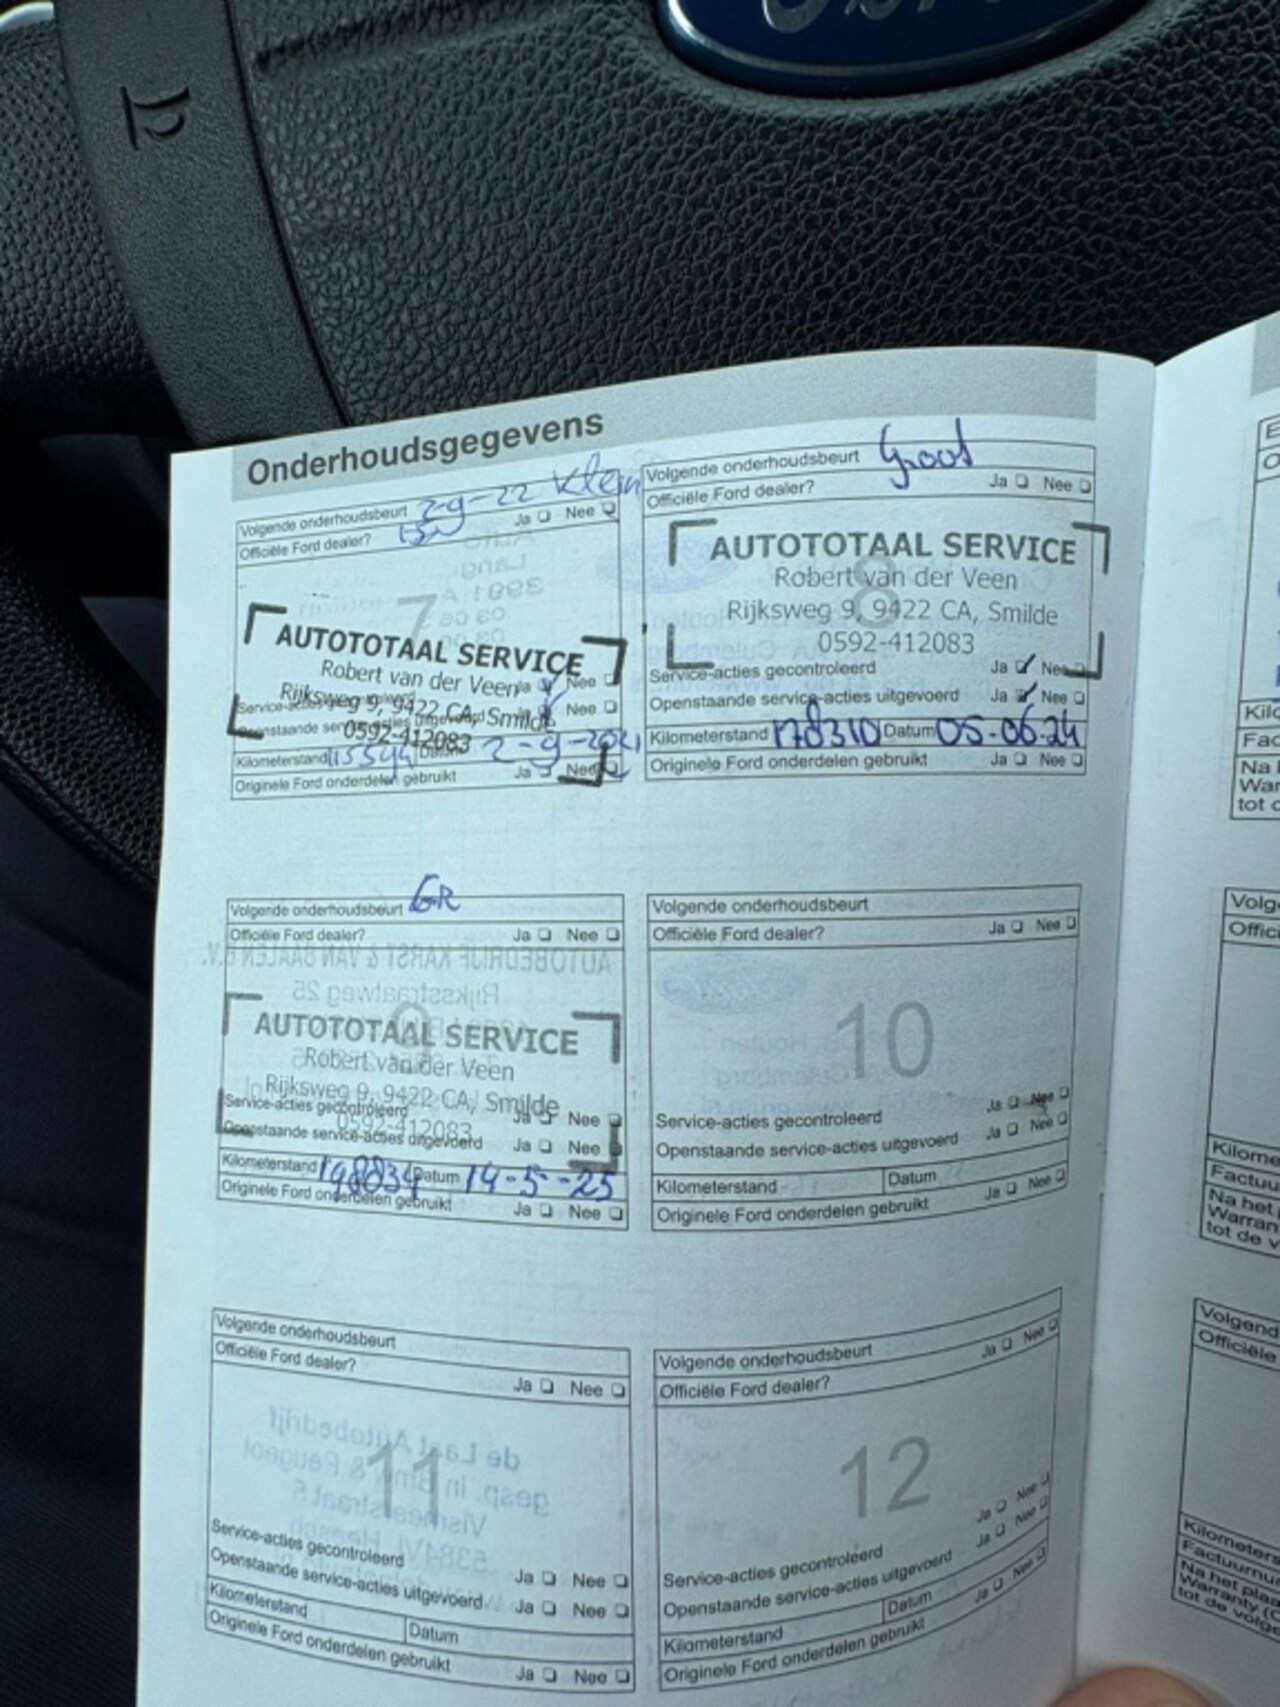 Onderhoudsgegevens
Volgende onderhoudsbeurt 2-9-22 Klein
Officiële Ford dealer? Ja Nee
7
AUTOTOTAAL SERVICE
Robert van der Veen
Rijksweg 9, 9422 CA, Smilde
0592-412083
Ja Nee
Ja Nee
Kilometerstand 115544 Datum 2-9-2021
Originele Ford onderdelen gebruikt Ja Nee
Volgende onderhoudsbeurt Groot
Officiële Ford dealer? Ja Nee
8
AUTOTOTAAL SERVICE
Robert van der Veen
Rijksweg 9, 9422 CA, Smilde
0592-412083
Service-acties gecontroleerd Ja Nee
Openstaande service-acties uitgevoerd Ja Nee
Kilometerstand 178310 Datum 05-06-24
Originele Ford onderdelen gebruikt Ja Nee
Volgende onderhoudsbeurt GR
Officiële Ford dealer? Ja Nee
9
AUTOTOTAAL SERVICE
Robert van der Veen
Rijksweg 9, 9422 CA, Smilde
0592-412083
Service-acties gecontroleerd Ja Nee
Openstaande service-acties uitgevoerd Ja Nee
Kilometerstand 198834 Datum 14-5-25
Originele Ford onderdelen gebruikt Ja Nee
Volgende onderhoudsbeurt
Officiële Ford dealer? Ja Nee
10
Service-acties gecontroleerd Ja Nee
Openstaande service-acties uitgevoerd Ja Nee
Kilometerstand Datum
Originele Ford onderdelen gebruikt Ja Nee
Volgende onderhoudsbeurt
Officiële Ford dealer? Ja Nee
11
Service-acties gecontroleerd Ja Nee
Openstaande service-acties uitgevoerd Ja Nee
Kilometerstand Datum
Originele Ford onderdelen gebruikt Ja Nee
Volgende onderhoudsbeurt
Officiële Ford dealer? Ja Nee
12
Service-acties gecontroleerd Ja Nee
Openstaande service-acties uitgevoerd Ja Nee
Kilometerstand Datum
Originele Ford onderdelen gebruikt Ja Nee